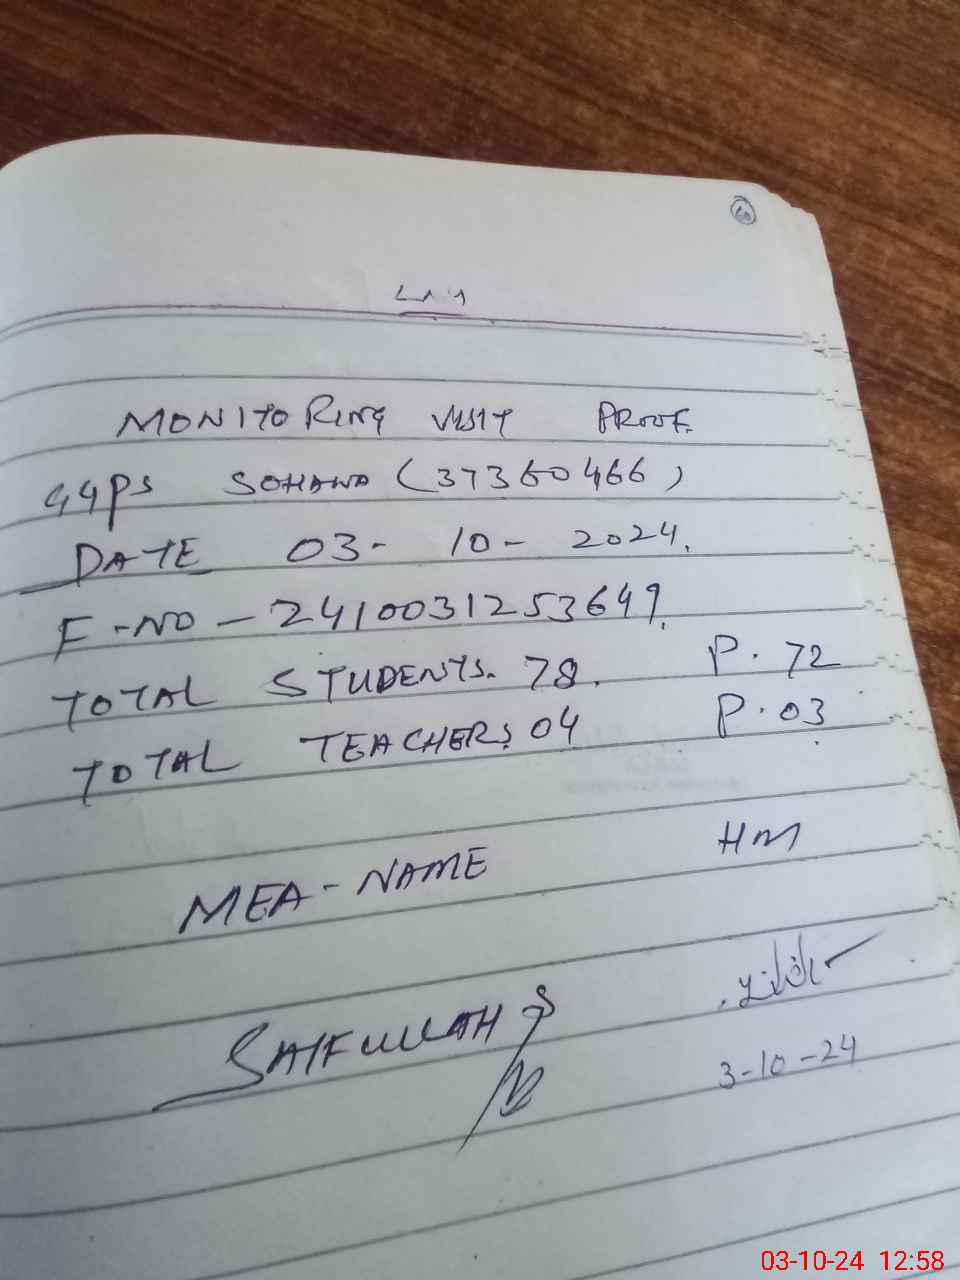 ۷۸۶
MONITORING VISIT PROOF.
GGPS SOHAWA (37360466)
DATE 03-10-2024.
F-NO-2410031253649.
TOTAL STUDENTS. 78. P. 72
TOTAL TEACHERS. 04 P. 03
MEA-NAME HM
SAIFULLAH
3-10-24
03-10-24 12:58